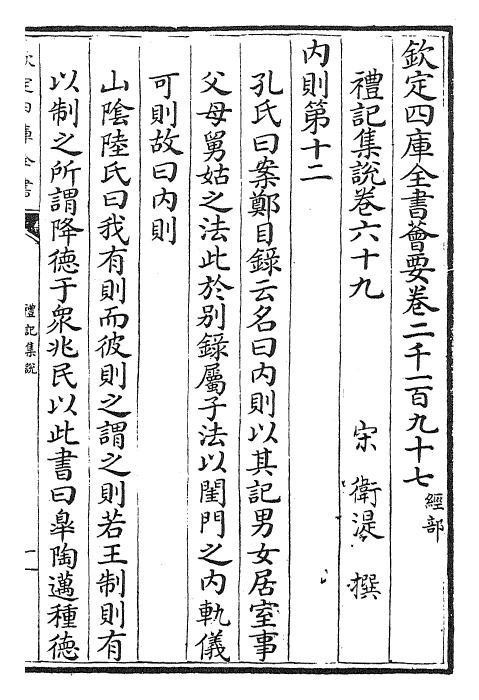 欽定四庫全書薈要卷二千一百九十七經部
禮記集說卷六十九
宋 衛湜 撰
內則第十二
孔氏曰案鄭目錄云名曰內則以其記男女居室事
父母舅姑之法此於別錄屬子法以閨門之內軌儀
可則故曰內則
山陰陸氏曰我有則而彼則之謂之則若王制則有
以制之所謂降德于衆兆民以此書曰皋陶邁種德
欽定四庫全書
禮記集說
一